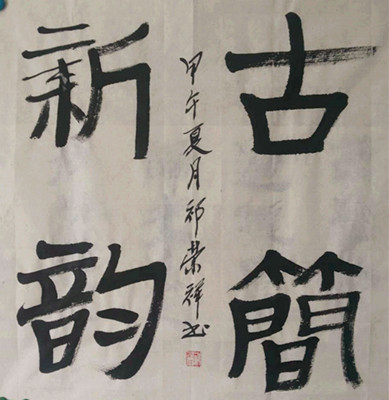 古簡
甲午夏月祁荣祥书
新韵